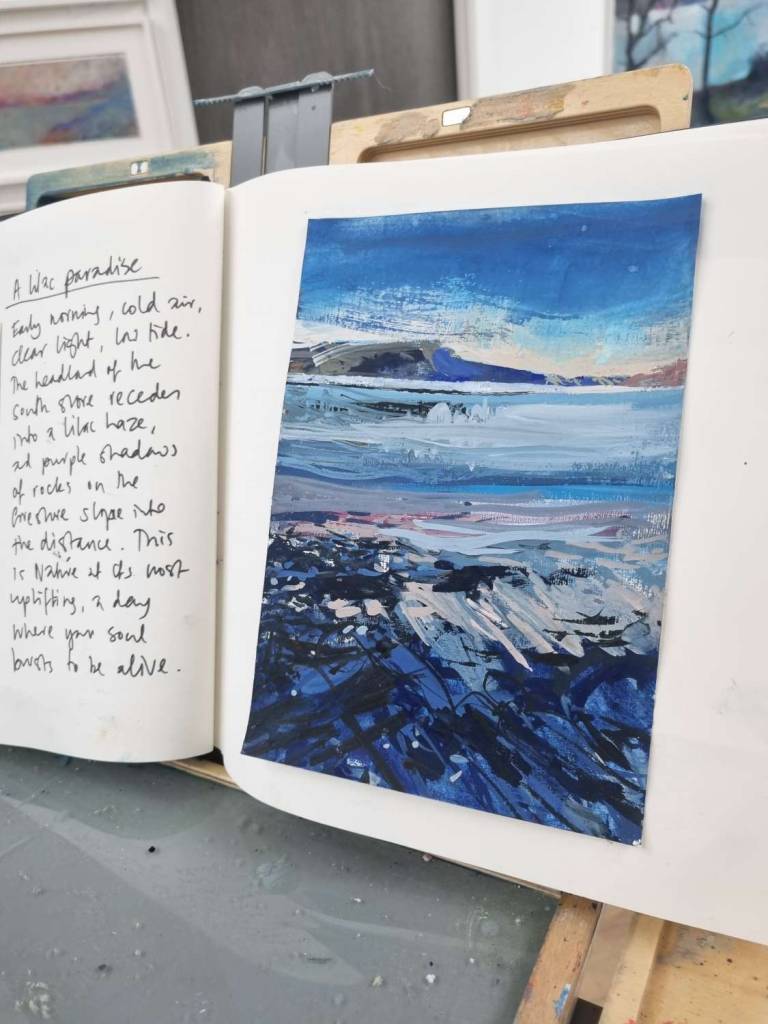 A lilac paradise
Early morning, cold air,
clear light, low tide.
The headland of the
south shore recedes
into a lilac haze,
and purple shadows
of rocks on the
foreshore slope into
the distance. This
is Nature at its most
uplifting, a day
where your soul
bursts to be alive.